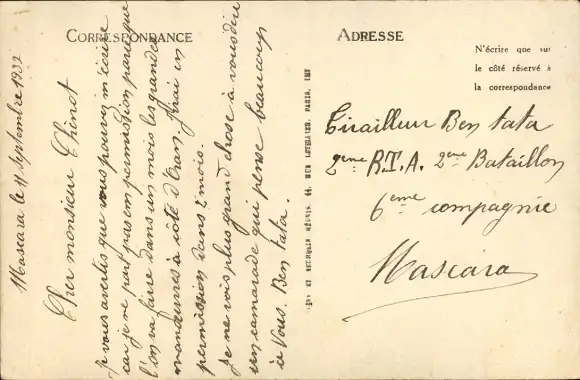 CORRESPONDANCE
Mascara le 11 Septembre 1932
Cher monsieur Thinot
Je vous avertis que vous pouvez m'écrire
car je ne part pas em permission parce que
l'on va faire dans un mois les grandes
manœuvres à côté d'Oran. J'irai in
permission dans 2 mois.
Je ne vois plus grand chose à vous dire
un camarade qui pense beaucoup
à Vous. Ben tata.
ADRESSE
N'écrire que sur
le côté réservé à
la correspondance
Tirailleur Ben tata
2ème R.T.A. 2ème Bataillon
6ème compagnie
Mascara
RÉUNIS, 44, RUE LETELLIER, PARIS, IMP